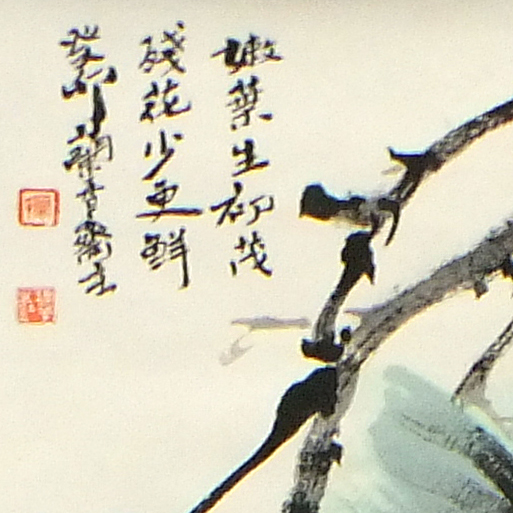 嫩葉生初茂
殘花少更鮮
癸卯蘭香齋主